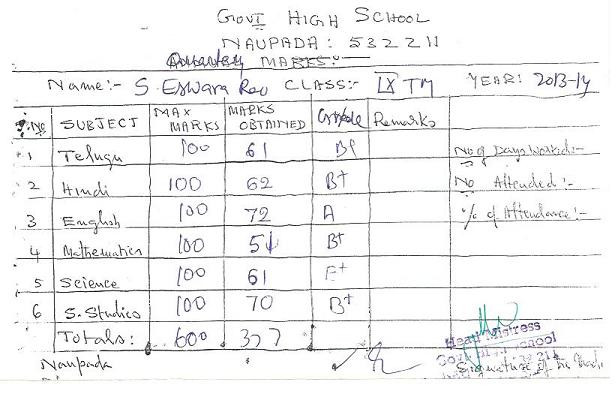 GOVT HIGH SCHOOL
NAUPADA: 532211
Quarterly MARKS:-
Name:- S. Eswara Rao CLASS:- IX TM YEAR: 2013-14
S.No SUBJECT MAX MARKS MARKS OBTAINED Grade Remarks
1 Telugu 100 61 B+ No of Days Worked:-
2 Hindi 100 62 B+ No Attended:-
3 English 100 72 A % of Attendance:-
4 Mathematics 100 51 B+
5 Science 100 61 B+
6 S. Studies 100 70 B+
Totals: 600 377
Naupada
Head Mistress
Govt High School
Signature of the